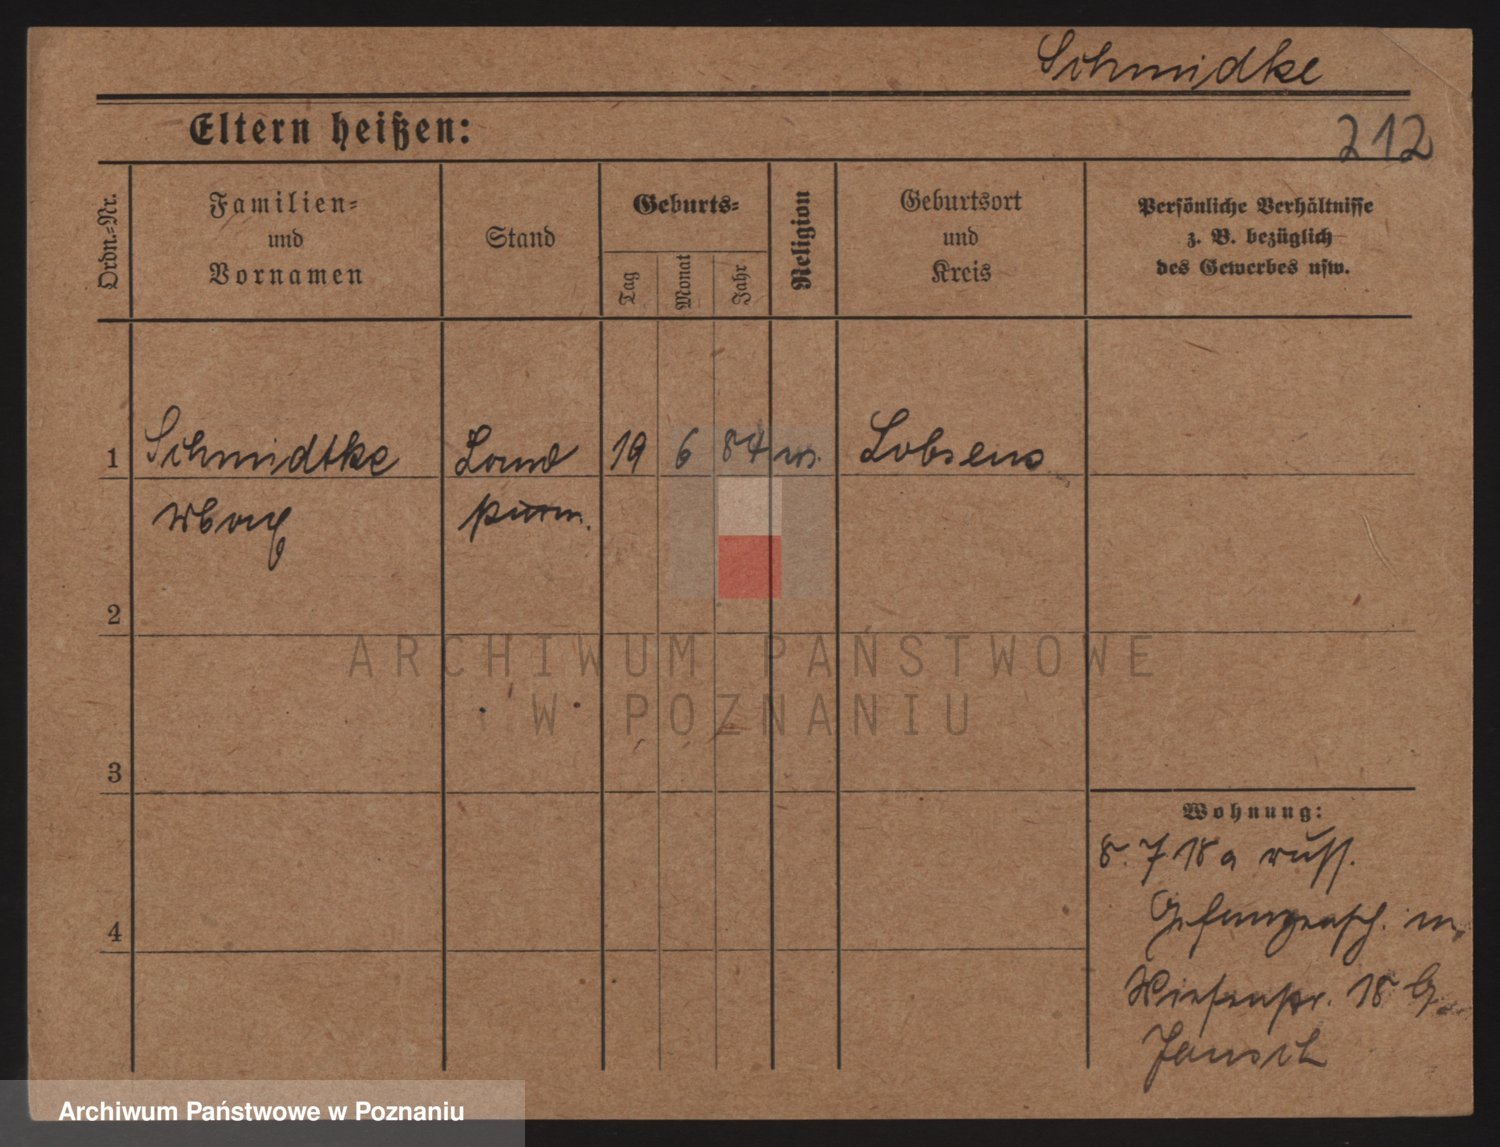 Schmidke
Eltern heißen:
212
Ordn.-Nr.
Familien-
und
Vornamen
Stand
Geburts-
Tag
Monat
Jahr
Religion
Geburtsort
und
Kreis
Persönliche Verhältnisse
z. B. bezüglich
des Gewerbes usw.
1
Schmidtke
Land
19
6
84
Lobsens
sturm.
2
ARCHIWUM PAŃSTWOWE
W POZNANIU
3
Wohnung:
8. 7 18 a russ.
Gefangensch.
4
Wiesenstr. 18
Archiwum Państwowe w Poznaniu